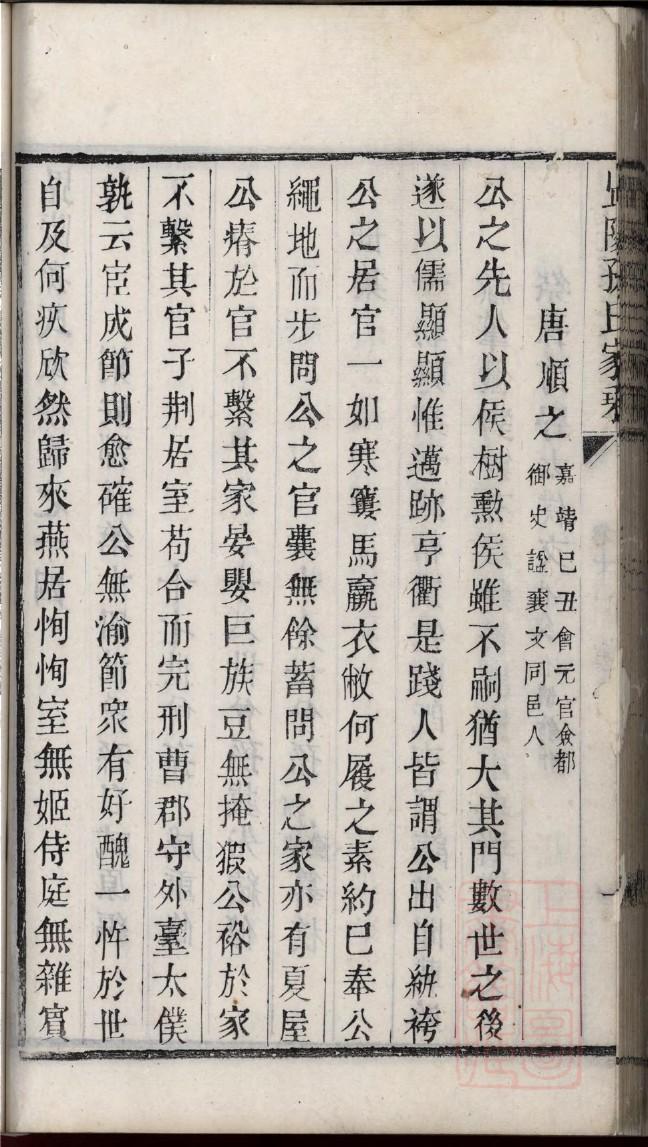 毘陵孫氏家乘
唐順之 嘉靖己丑會元官僉都
御史諡襄文同邑人
公之先人以侯樹勲侯雖不嗣猶大其門數世之後
遂以儒顯顯惟邁跡亨衢是踐人皆謂公出自紈袴
公之居官一如寒窶馬羸衣敝何履之素約己奉公
繩地而步問公之官囊無餘蓄問公之家亦有夏屋
公瘠於官不繫其家晏嬰巨族豆無掩豭公裕於家
不繫其官子荆居室苟合而完刑曹郡守外臺太僕
孰云宦成節則愈確公無渝節衆有好醜一忤於世
自及何疚欣然歸來燕居恂恂室無姬侍庭無雜賓
上海圖書館藏